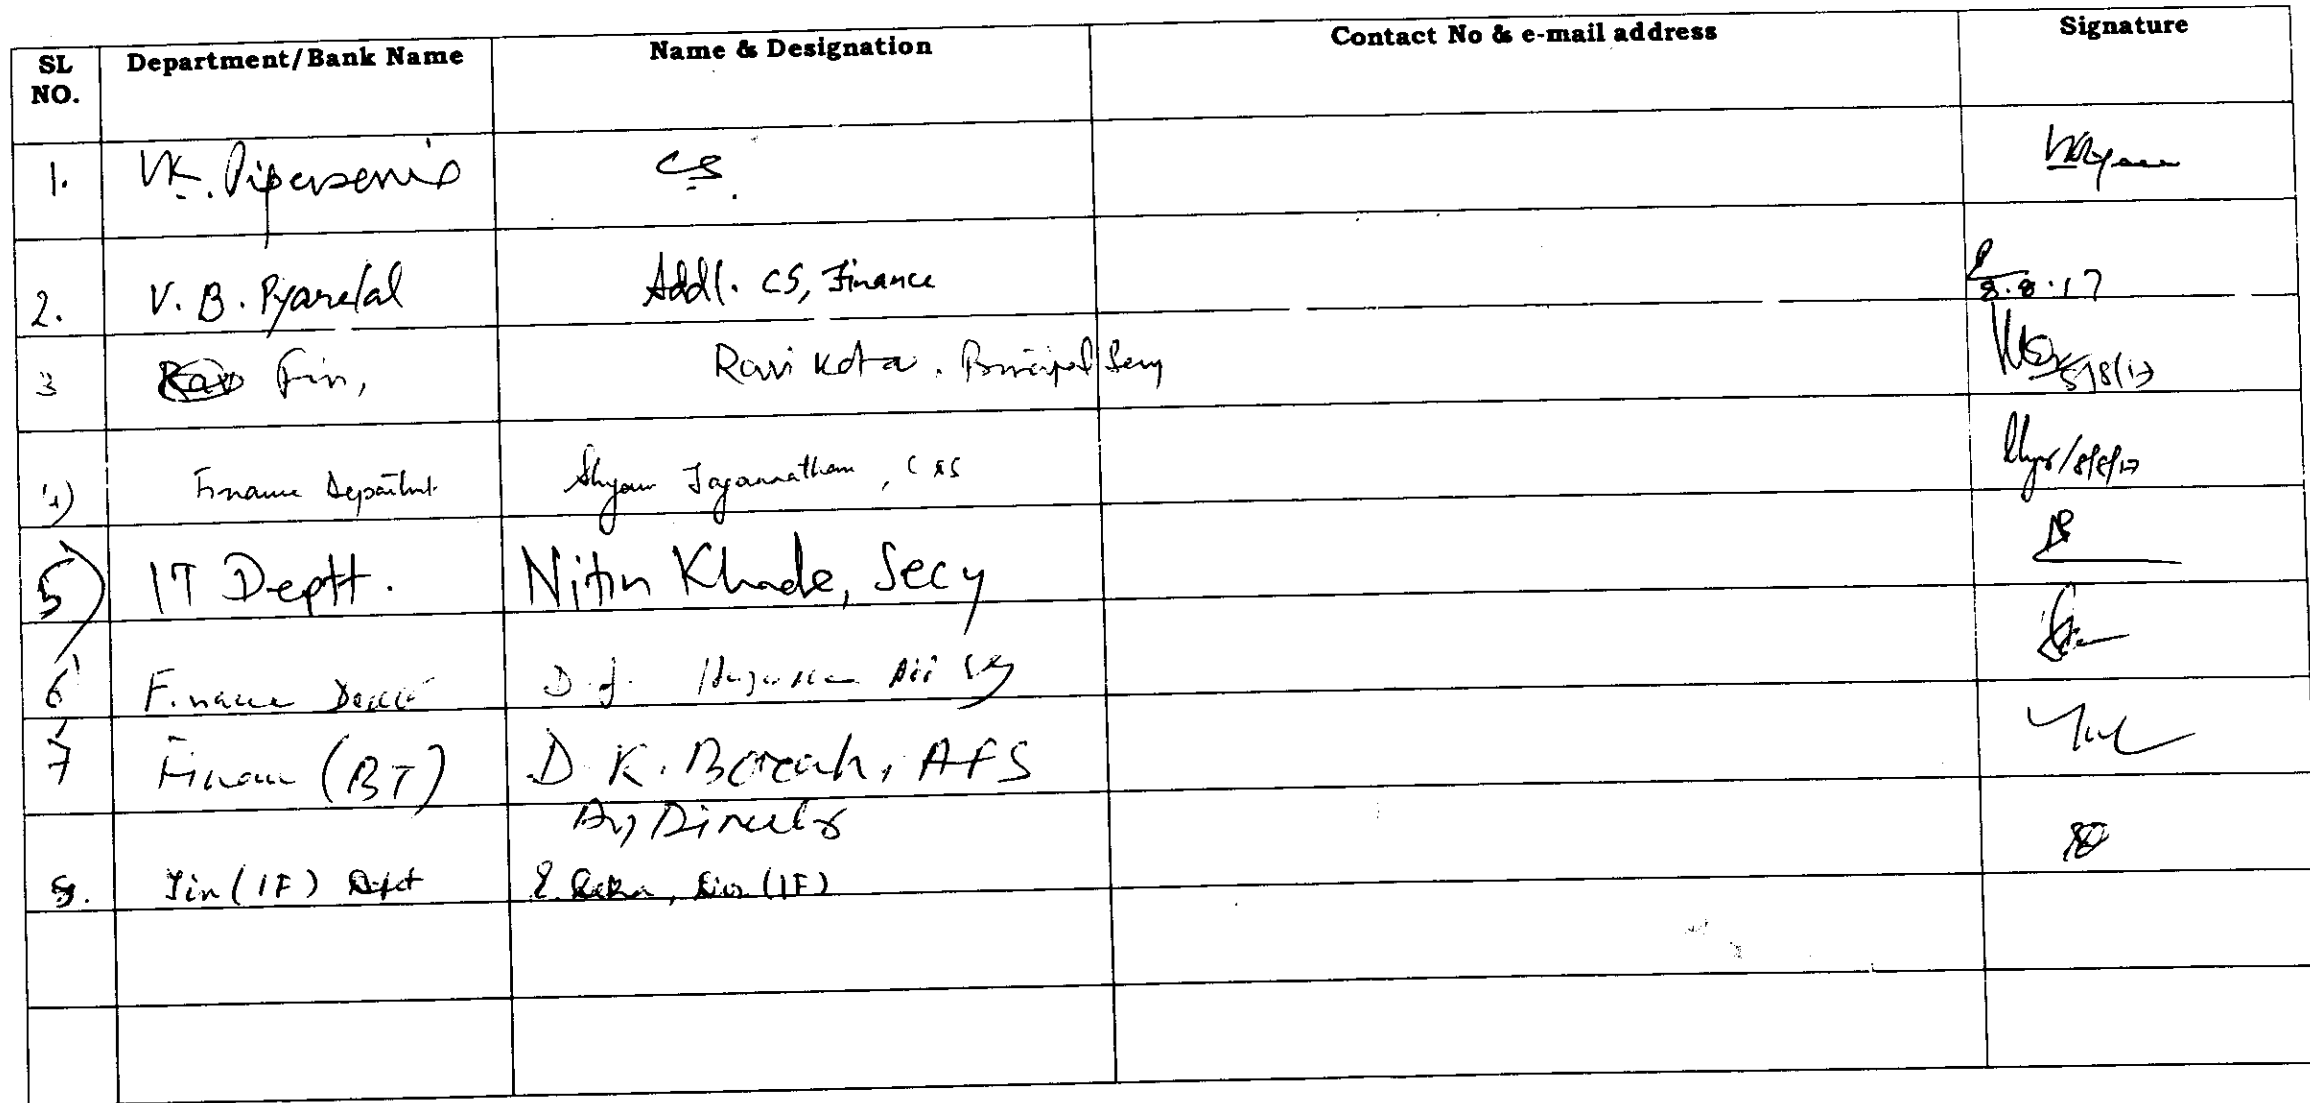 SL NO. Department/Bank Name Name & Designation Contact No & e-mail address Signature
1. VK. Pipersenia CS.
2. V. B. Pyarelal Addl. CS, Finance 8.8.17
3 Fin, Ravi Kota. Principal Secy 8/8/17
4) Finance Department Shyam Jagannathan, 8/8/17
5) IT Deptt. Nitin Khade, Secy
6 Finance
7 Finance (BT) D K. Borah, AFS
Director
8. Fin (IF) Deptt (IF)